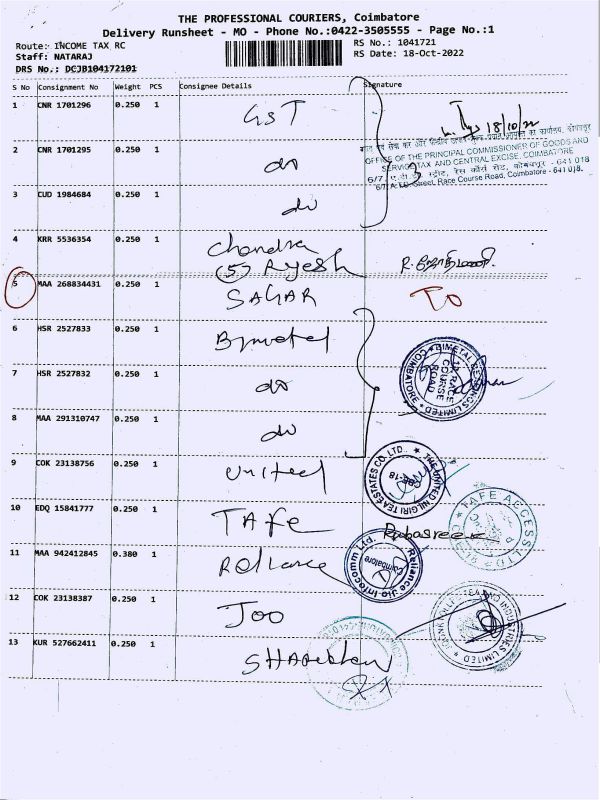 THE PROFESSIONAL COURIERS, Coimbatore
Delivery Runsheet - MO - Phone No.:0422-3505555 - Page No.:1
Route: INCOME TAX RC
RS No.: 1041721
Staff: NATARAJ
RS Date: 18-Oct-2022
DRS No.: DCJB104172101
S No Consignment No Weight PCS Consignee Details Signature
1 CNR 1701296 0.250 1 GST
18/10/22
2 CNR 1701295 0.250 1 do 3
OFFICE OF THE PRINCIPAL COMMISSIONER OF GOODS AND
SERVICE TAX AND CENTRAL EXCISE, COIMBATORE
6/7, ए.टी.डी. स्ट्रीट, रेस कोर्स रोड, कोयंबत्तूर - 641 018
6/7 A.T.D. Street, Race Course Road, Coimbatore - 641 018.
3 CUD 1984684 0.250 1 do
4 KRR 5536354 0.250 1 Chandra
(5) Rajesh
5 MAA 268834431 0.250 1 SAGAR TO
6 HSR 2527833 0.250 1 Bimetal
BIMETAL BEARINGS LIMITED COIMBATORE
RACE COURSE ROAD
7 HSR 2527832 0.250 1 do
8 MAA 291310747 0.250 1 do
9 COK 23138756 0.250 1 United
THE UNITED NILGIRI TEA ESTATES CO. LTD.
CBE-18
10 EDQ 15841777 0.250 1 TAFE
TAFE ACCESS LTD
11 MAA 942412845 0.380 1 Reliance
Reliance Jio Infocomm Ltd.
Coimbatore
12 COK 23138387 0.250 1 Joo
INDUSTRIES LIMITED
13 KUR 527662411 0.250 1